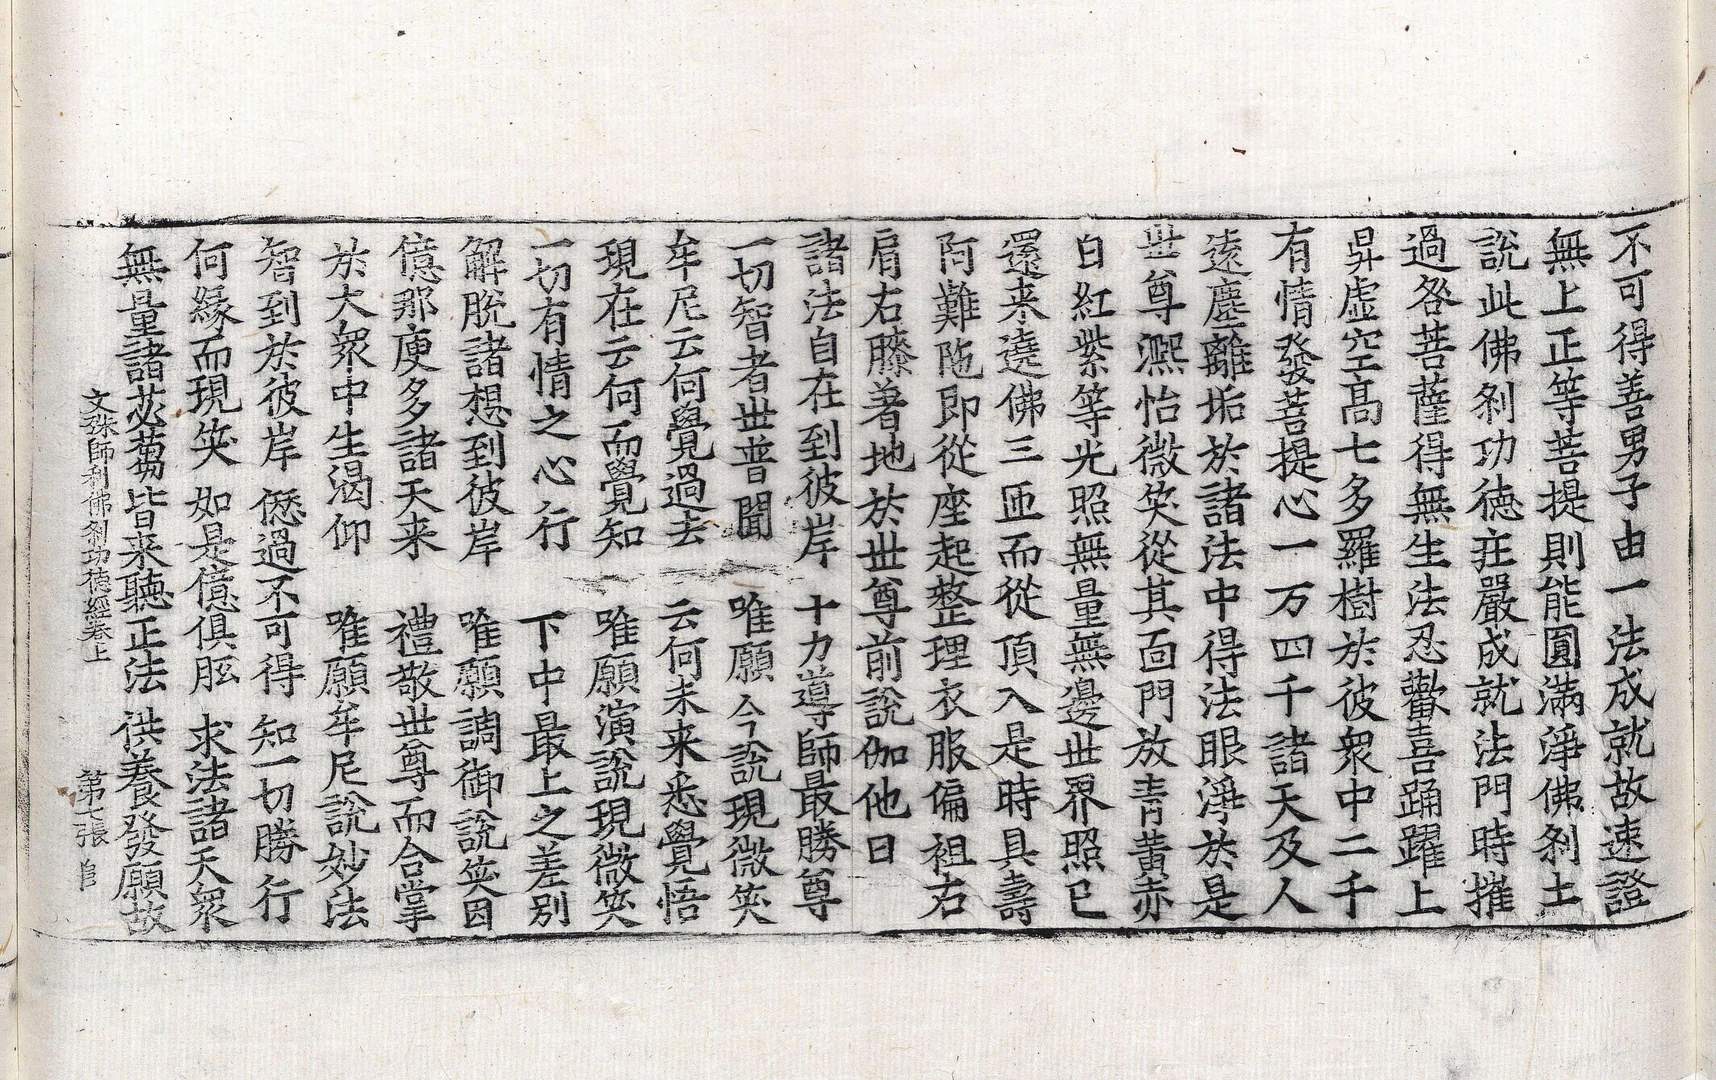 不可得善男子由一法成就故速證
無上正等菩提則能圓滿淨佛剎土
說此佛剎功德莊嚴成就法門時摧
過咎菩薩得無生法忍歡喜踊躍上
昇虛空高七多羅樹於彼衆中二千
有情發菩提心一万四千諸天及人
遠塵離垢於諸法中得法眼淨於是
世尊熈怡微笑從其面門放青黃赤
白紅紫等光照無量無邊世界照已
還来遶佛三匝而從頂入是時具壽
阿難陁即從座起整理衣服偏袒右
肩右膝著地於世尊前說伽他曰
諸法自在到彼岸　十力導師最勝尊
一切智者世普聞　唯願今說現微笑
牟尼云何覺過去　云何未来悉覺悟
現在云何而覺知　唯願演說現微笑
一切有情之心行　下中最上之差別
解脫諸想到彼岸　唯願調御說笑因
億那庾多諸天来　禮敬世尊而合掌
於大衆中生渴仰　唯願牟尼說妙法
智到於彼岸　㒹過不可得　知一切勝行
何緣而現笑　如是億俱胝　求法諸天衆
無量諸苾蒭　皆来聽正法　供養發願故
文殊師利佛剎功德經卷上　第七張